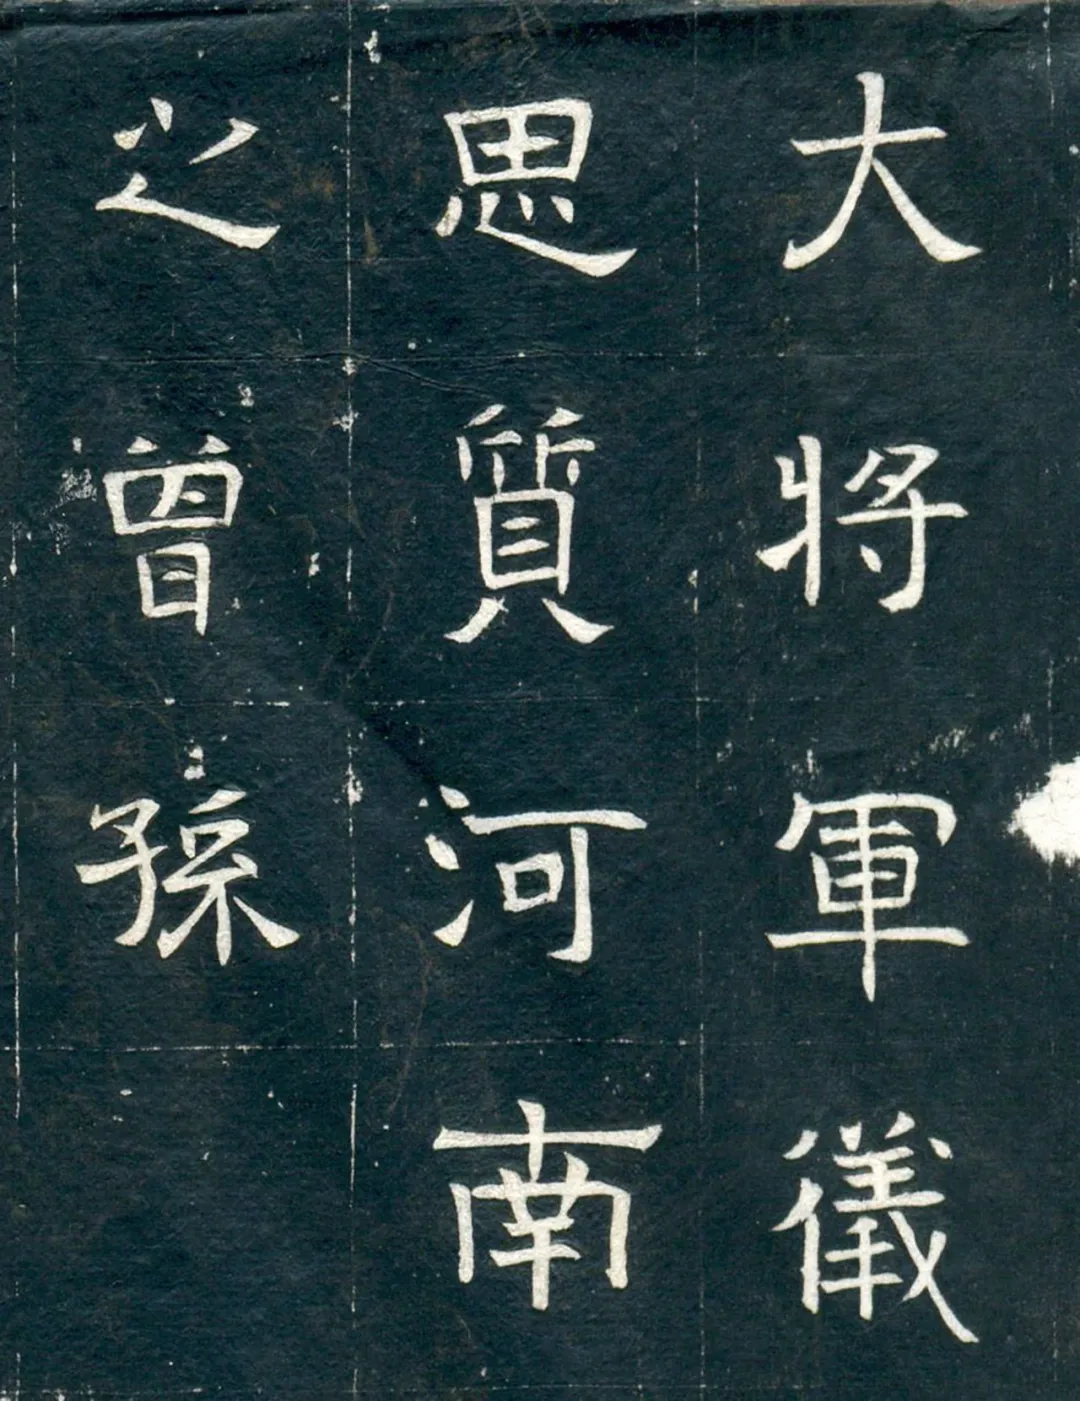 大將軍儀
思質河南
之曾孫